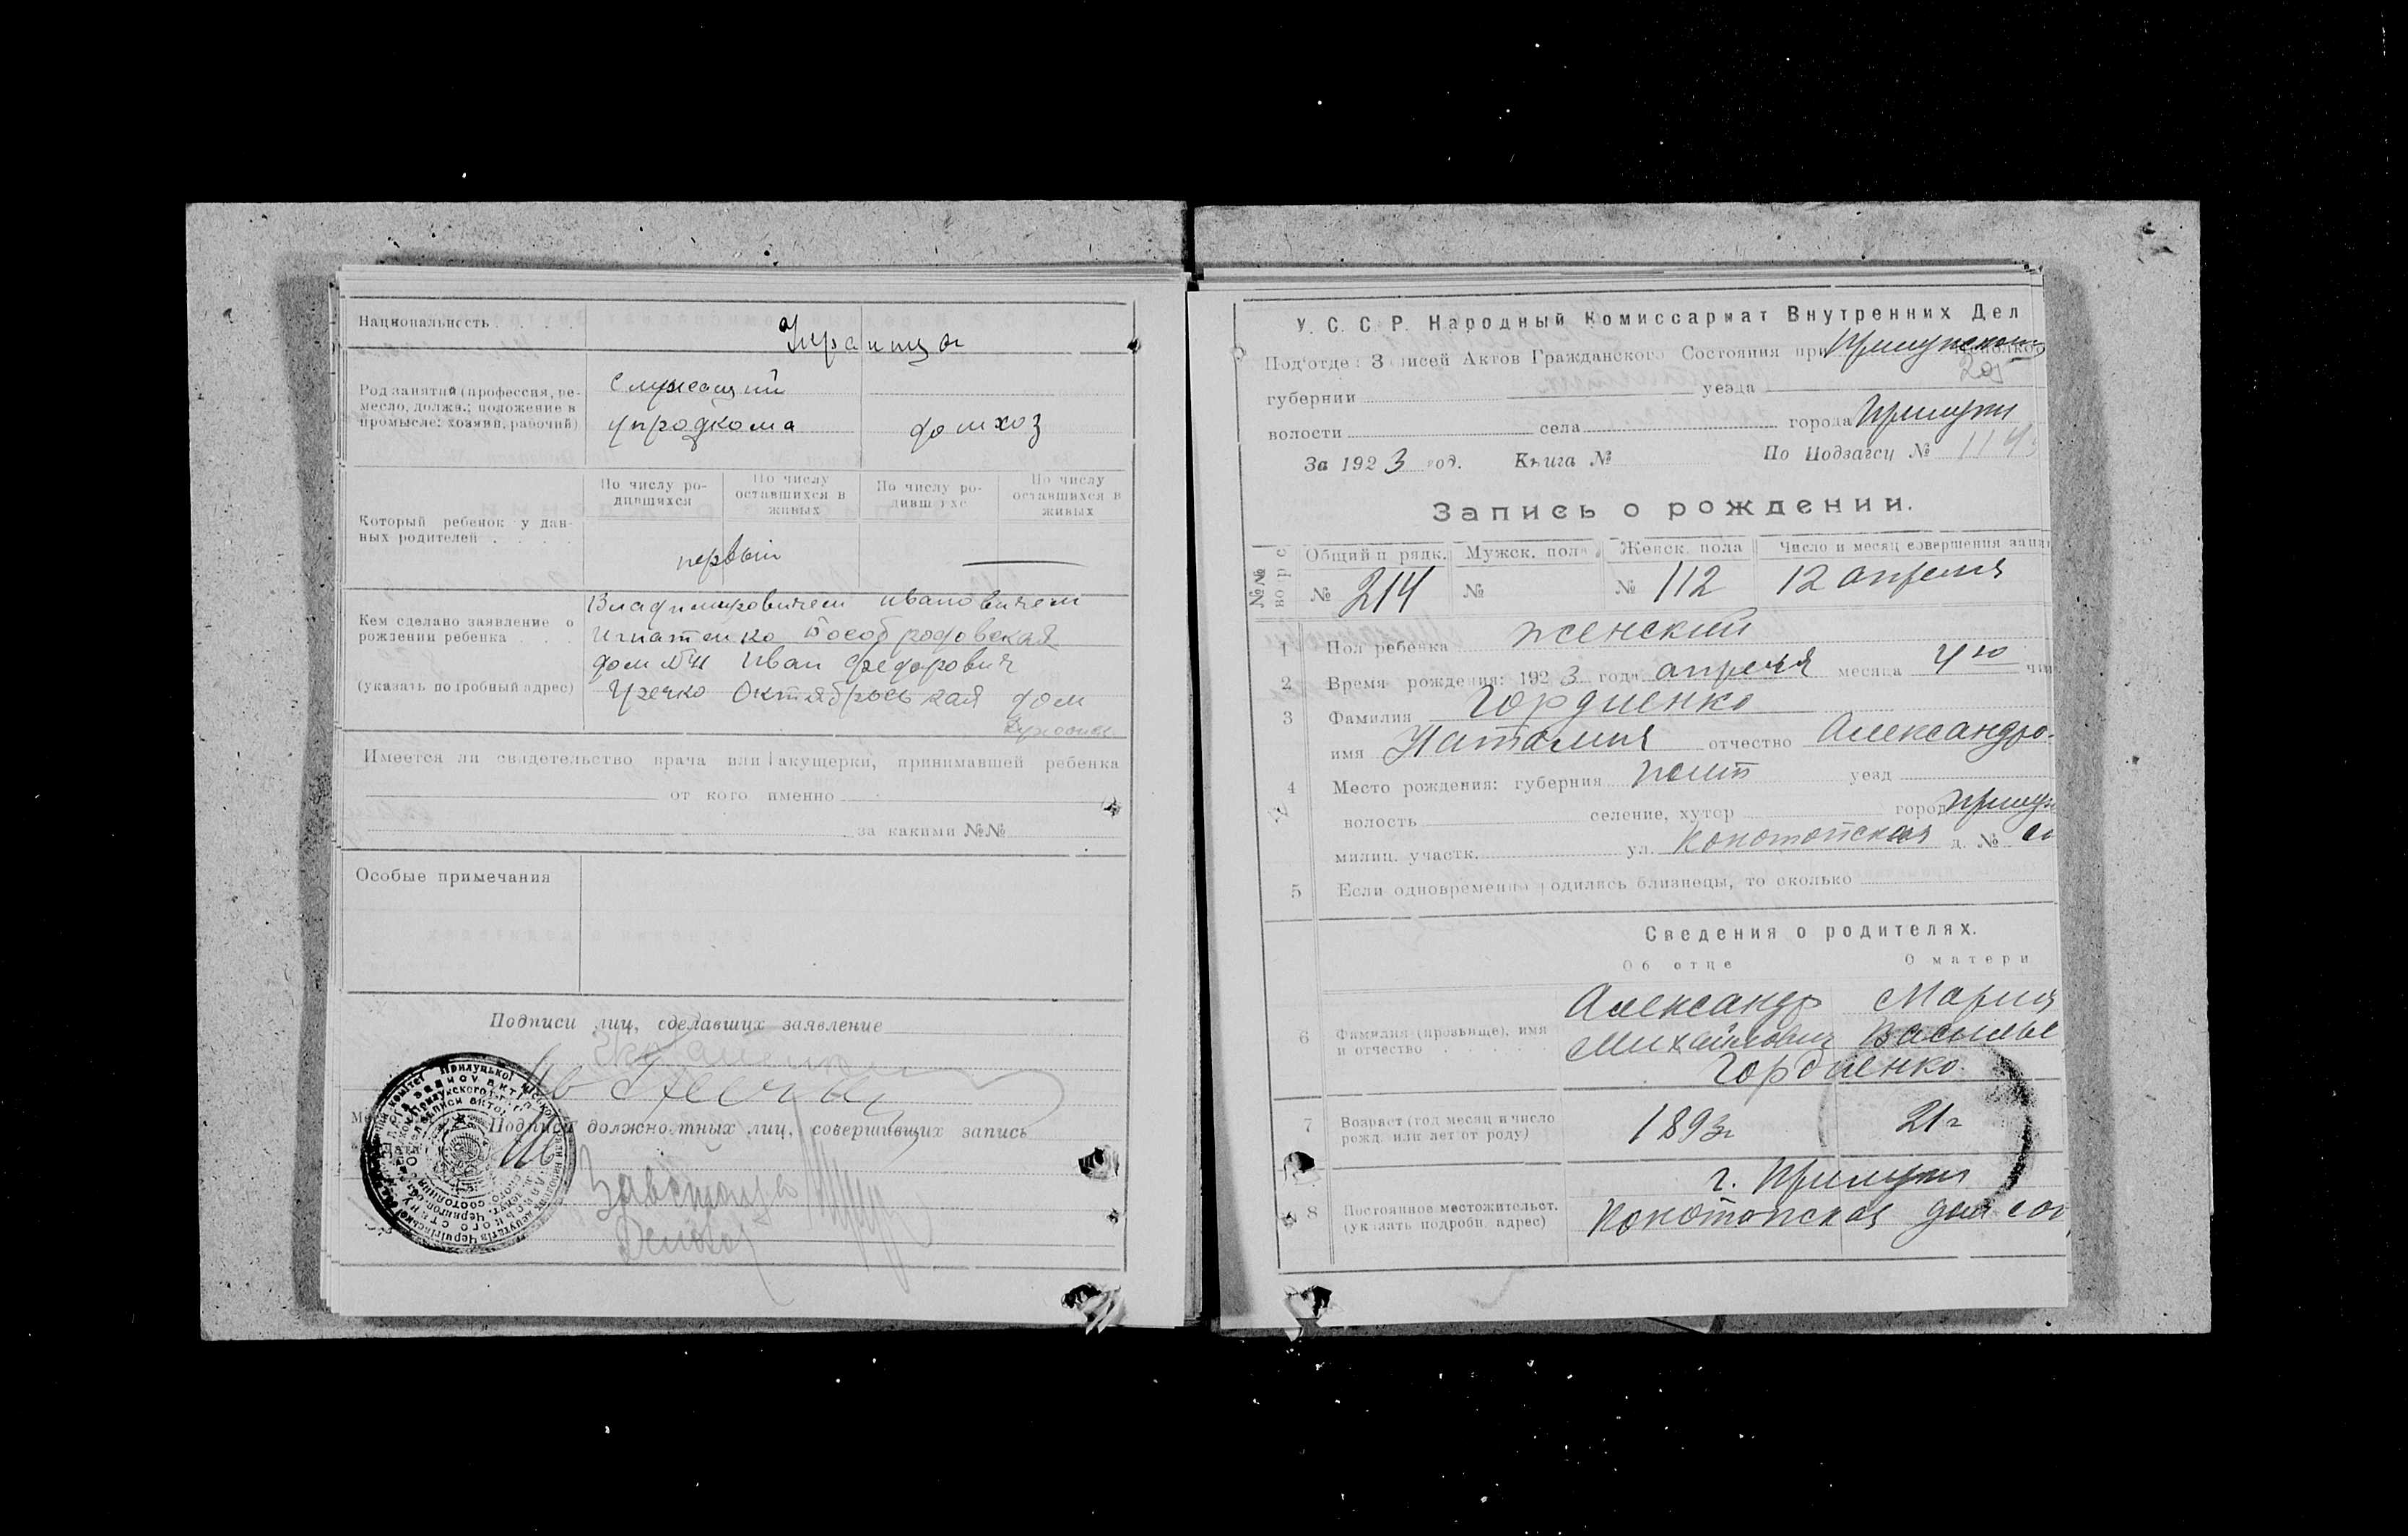 Национальность
Украинцы
Род занятий (профессия, ре-
месло, должн.; положение в
промысле: хозяин, рабочий)
Служащий
упродкома
домхоз
По числу ро-
дившихся
По числу
оставшихся в
живых
По числу ро-
дившихс
По числу
оставшихся в
живых
Который ребенок у дан-
ных родителей
первый
Кем сделано заявление о
рождении ребенка
(указать подробный адрес)
Владимировичем Ивановичем
Игнатенко
дом №41 Иван Федорович
Гречко Октябрьская дом
Имеется ли свидетельство врача или акушерки, принимавшей ребенка
от кого именно
за какими №№
Особые примечания
Подписи лиц, сделавших заявление
Подписи должностных лиц, совершивших запись
У. С. С. Р. Народный Комиссариат Внутренних Дел
Под'отдел Записей Актов Гражданского Состояния при Прилукском
губернии уезда
волости села города Прилуки
За 1923 год. Книга № По Подзагсу № 114
Запись о рождении.
№№
Общий п рядк. Мужск. пола Женск. пола Число и месяц совершения запи
№ 214 № № 112 12 апреля
1 Пол ребенка женский
2 Время рождения: 1923 года апреля месяца 4го чи
3 Фамилия Гордиенко
имя Наталия отчество Александро-
4 Место рождения: губерния Полт уезд
волость селение, хутор город Прилук
милиц. участк. ул. Конотопская д. №
5 Если одновременно родились близнецы, то сколько
Сведения о родителях.
Об отце О матери
6 Фамилия (прозвище), имя
и отчество
Александр Мария
Михайлович Васильев
Гордиенко
7 Возраст (год месяц и число
рожд. или лет от роду)
1893г 21г
8 Постоянное местожительст.
(указать подробн. адрес)
г. Прилуки
Конотопская дом